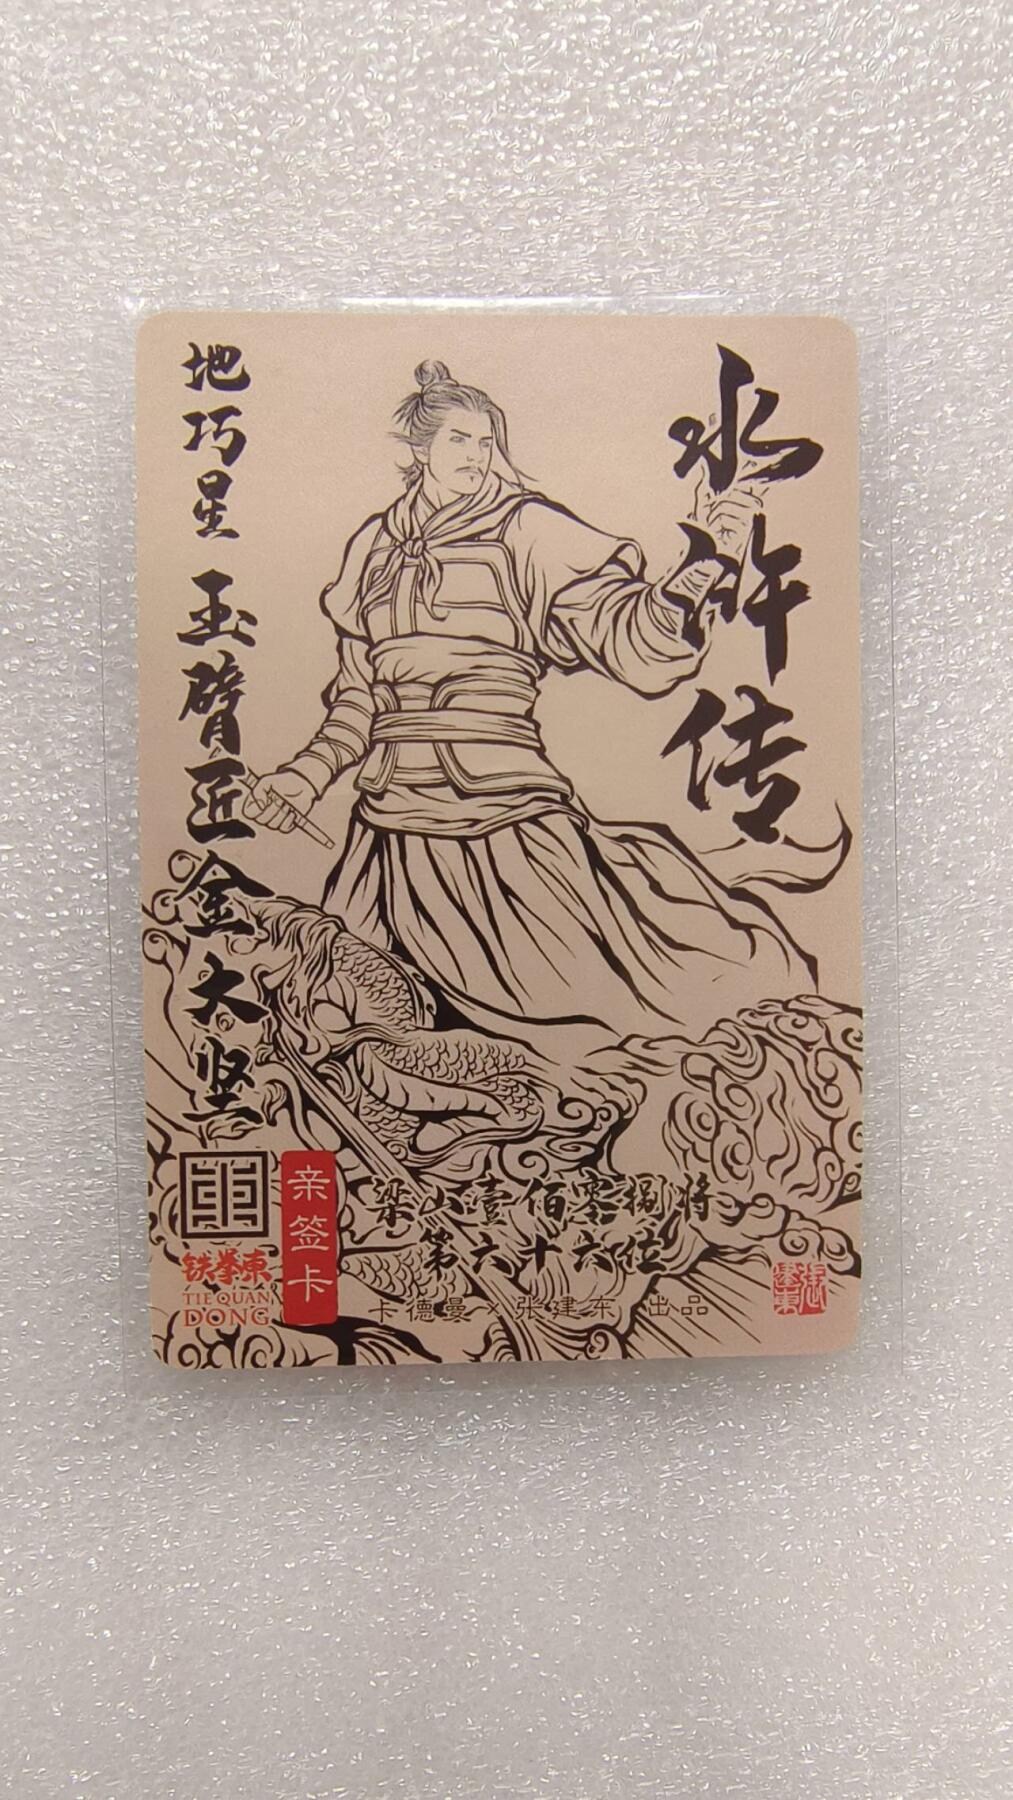 水浒传
地巧星 玉臂匠 金大坚
铁拳東
TIE QUAN
DONG
亲签卡
梁山壹佰零捌将
第六十六位
卡德曼×张建东 出品
張建東